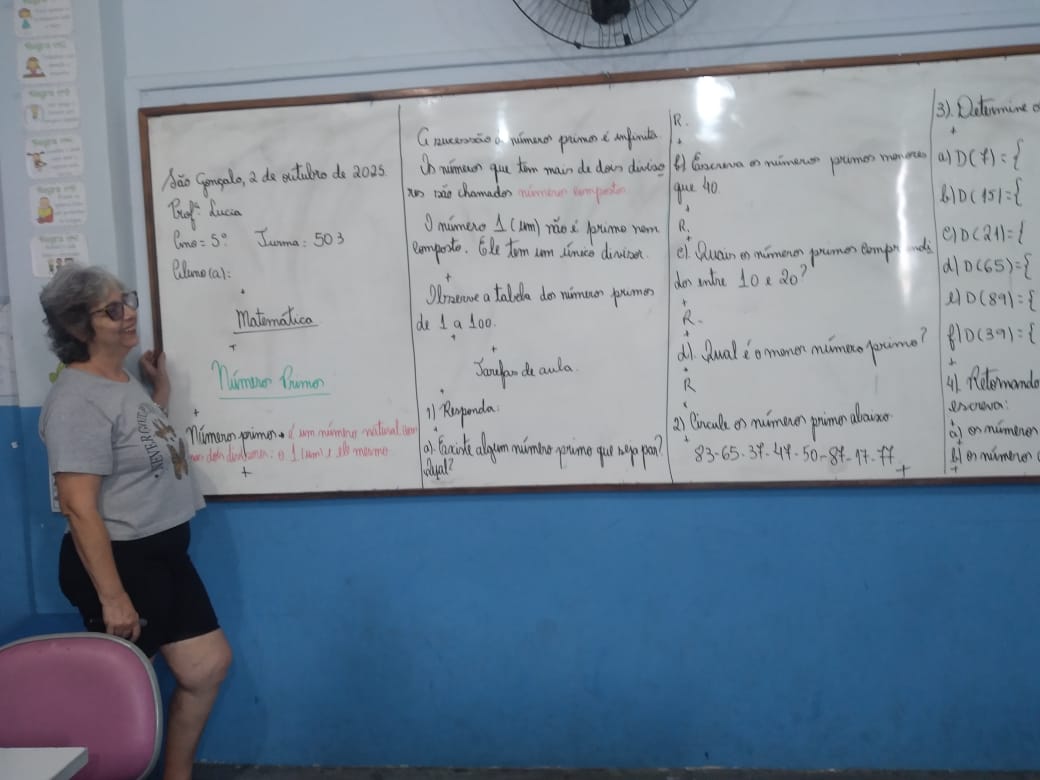 São Gonçalo, 2 de outubro de 2025
Profª: Lucia
Ano = 5º Turma: 503
Aluno(a):
Matemática
Números Primos
Números primos → é um número natural com
dois divisores: o 1 (um) e ele mesmo.
A sucessão de números primos é infinita.
Os números que têm mais de dois diviso
res são chamados números compostos
O número 1 (um) não é primo nem
composto. Ele tem um único divisor.
Observe a tabela dos números primos
de 1 a 100.
Tarefas de aula.
1) Responda:
a) Existe algum número primo que seja par?
Qual?
R.
b) Escreva os números primos menores
que 40.
R.
c) Quais os números primos compreendi
dos entre 10 e 20?
R.
d) Qual é o menor número primo?
R
2) Circule os números primos abaixo
83-65-37-47-50-87-97-77
3). Determine
a) D(7) = {
b) D(15) = {
c) D(21) = {
d) D(65) = {
e) D(89) = {
f) D(39) = {
4). Retomando
escreva:
a) os números
b) os números